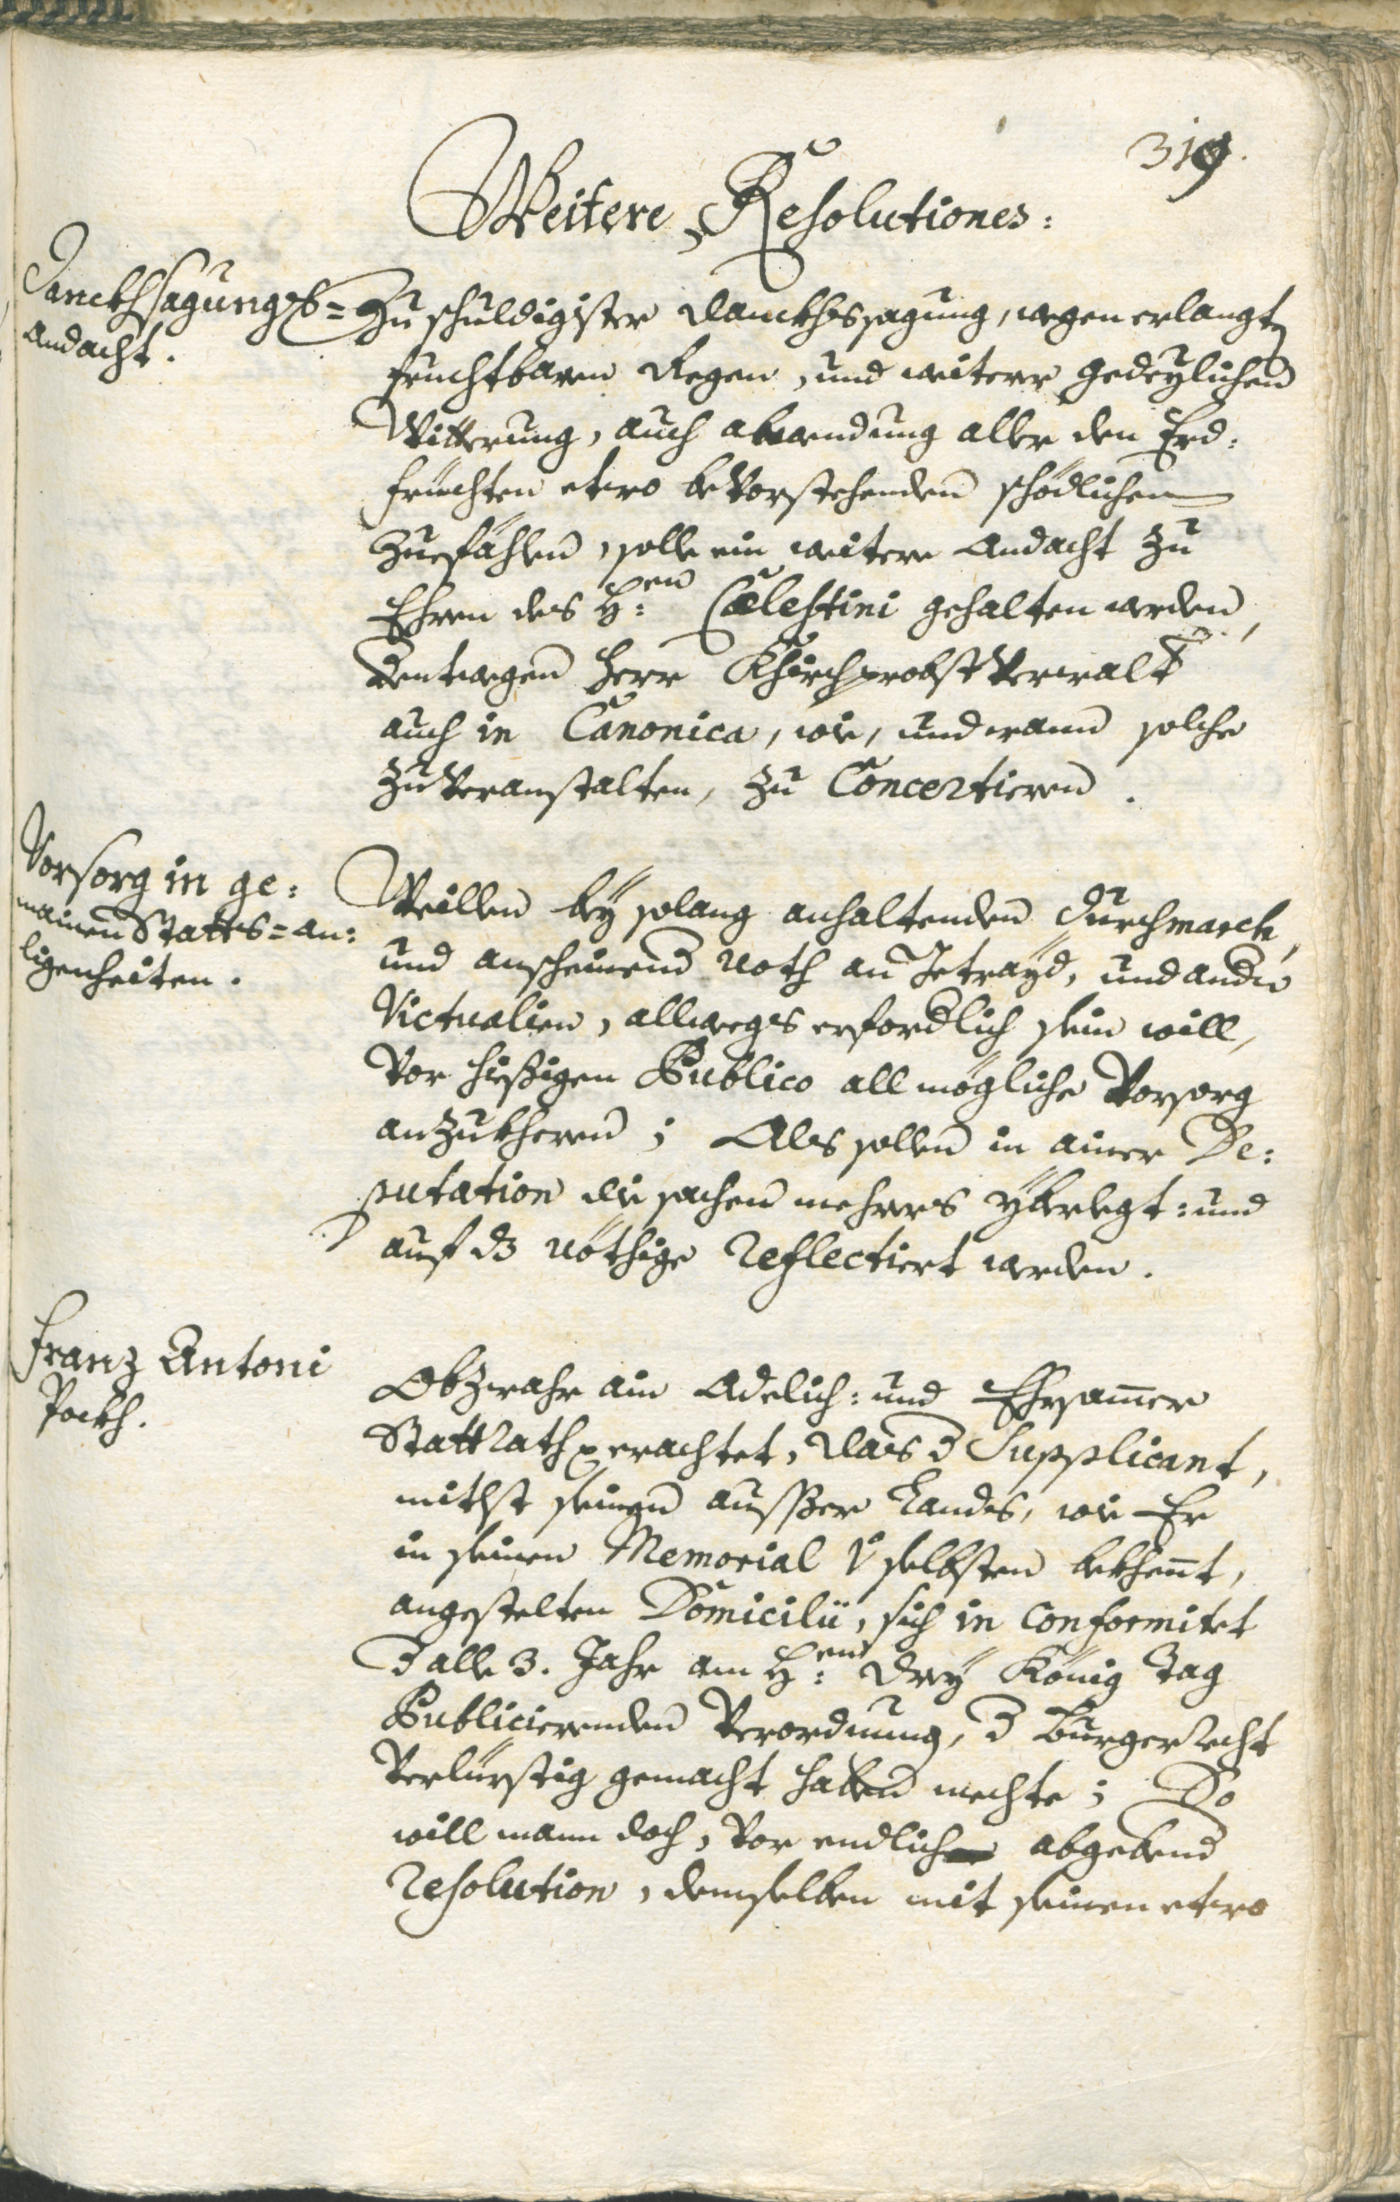 319.
Weitere Resolutiones:
Danckhsagungs=
Andacht.
Zu schuldigister danckhsagung, wegen erlangt
fruchtbaren Regen, und weiterer gedeylichen
Witterung, auch abwendung aller den Erd:
früchten etwo bevorstehenden schödlichen
Zuefählen, solle ein weitere Andacht zu
Ehren des H:en Cælestini gehalten werden,
dentwegen herr Khürchprobst Verwalt
auch in Canonica, wie, und wann solche
zu veranstalten, zu Concertieren.
Vorsorg in ge:
mainen Statts=an:
ligenheiten.
Weillen bey solang anhaltenden durchmarch,
und anscheinend noth an Getrayd, und andn
Victualien, allwegs erfordlich sein will,
vor hießigen Publico all mögliche Vorsorg
anzukheren; Als sollen in ainer De:
putation die sachen mehrers yberlegt: und
auf dz nöthige reflectiert werden.
Franz Antoni
Pockh.
Obzwahr ain Adelich: und Ehrsamer
Stattrath erachtet, dass d Supplicant,
mithst seinen ausser Landes, wie Er
in seinen Memorial selbsten bekhent,
angestelten Domicilii, sich in conformitet
d alle 3. Jahr am H:en drey König Tag
Publicierenden Verordnung, d burgerrecht
verlürstig gemacht haben mechte; So
will mann doch, vor endlich abgebend
resolution, demselben mit seinen etwo